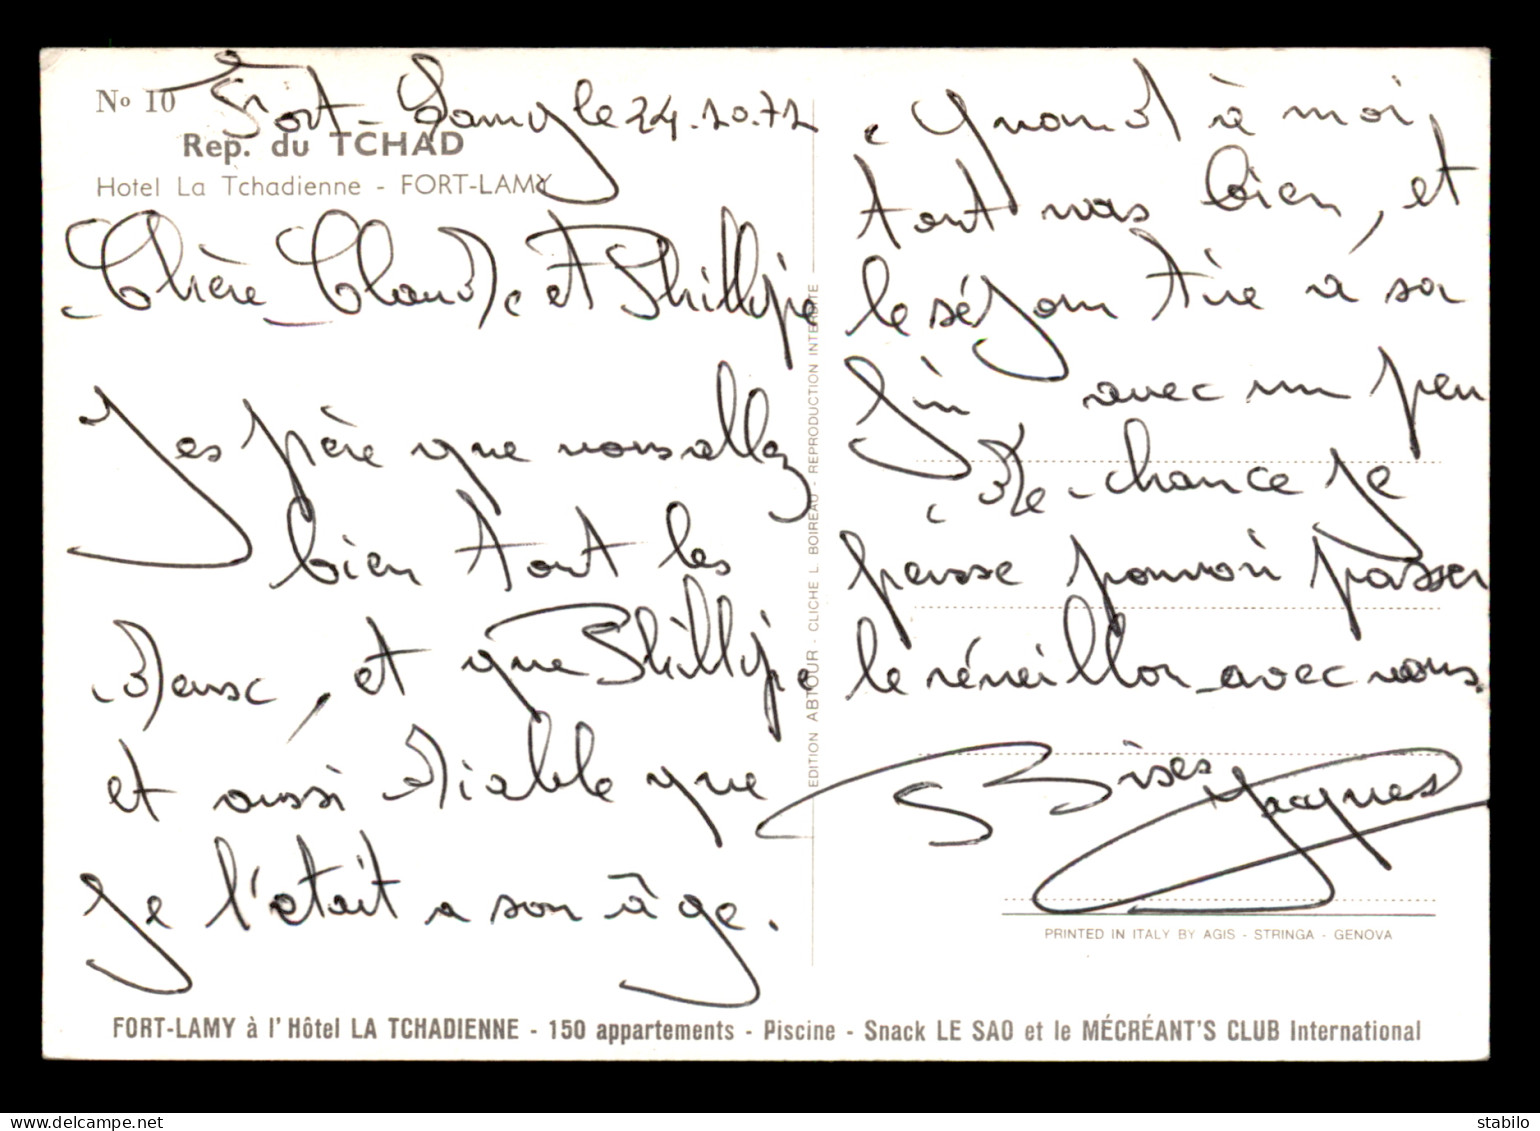 No 10
Fort-Lamy le 24.10.72
Rep. du TCHAD
Hotel La Tchadienne - FORT-LAMY
Chère Claude et Phillipe
J'espère que vous allez
bien tout les
deux, et que Phillipe
et aussi diable que
je l'était a son âge.
Quand à moi,
tout vas bien, et
le séjour tire à sa
fin avec un peu
de chance je
pense pouvoir passer
le réveillon avec vous.
Bises Jacques
EDITION ABTOUR - CLICHE L. BOIREAU - REPRODUCTION INTERDITE
PRINTED IN ITALY BY AGIS - STRINGA - GENOVA
FORT-LAMY à l'Hôtel LA TCHADIENNE - 150 appartements - Piscine - Snack LE SAO et le MÉCRÉANT'S CLUB International
the-postcard.com
stabilo